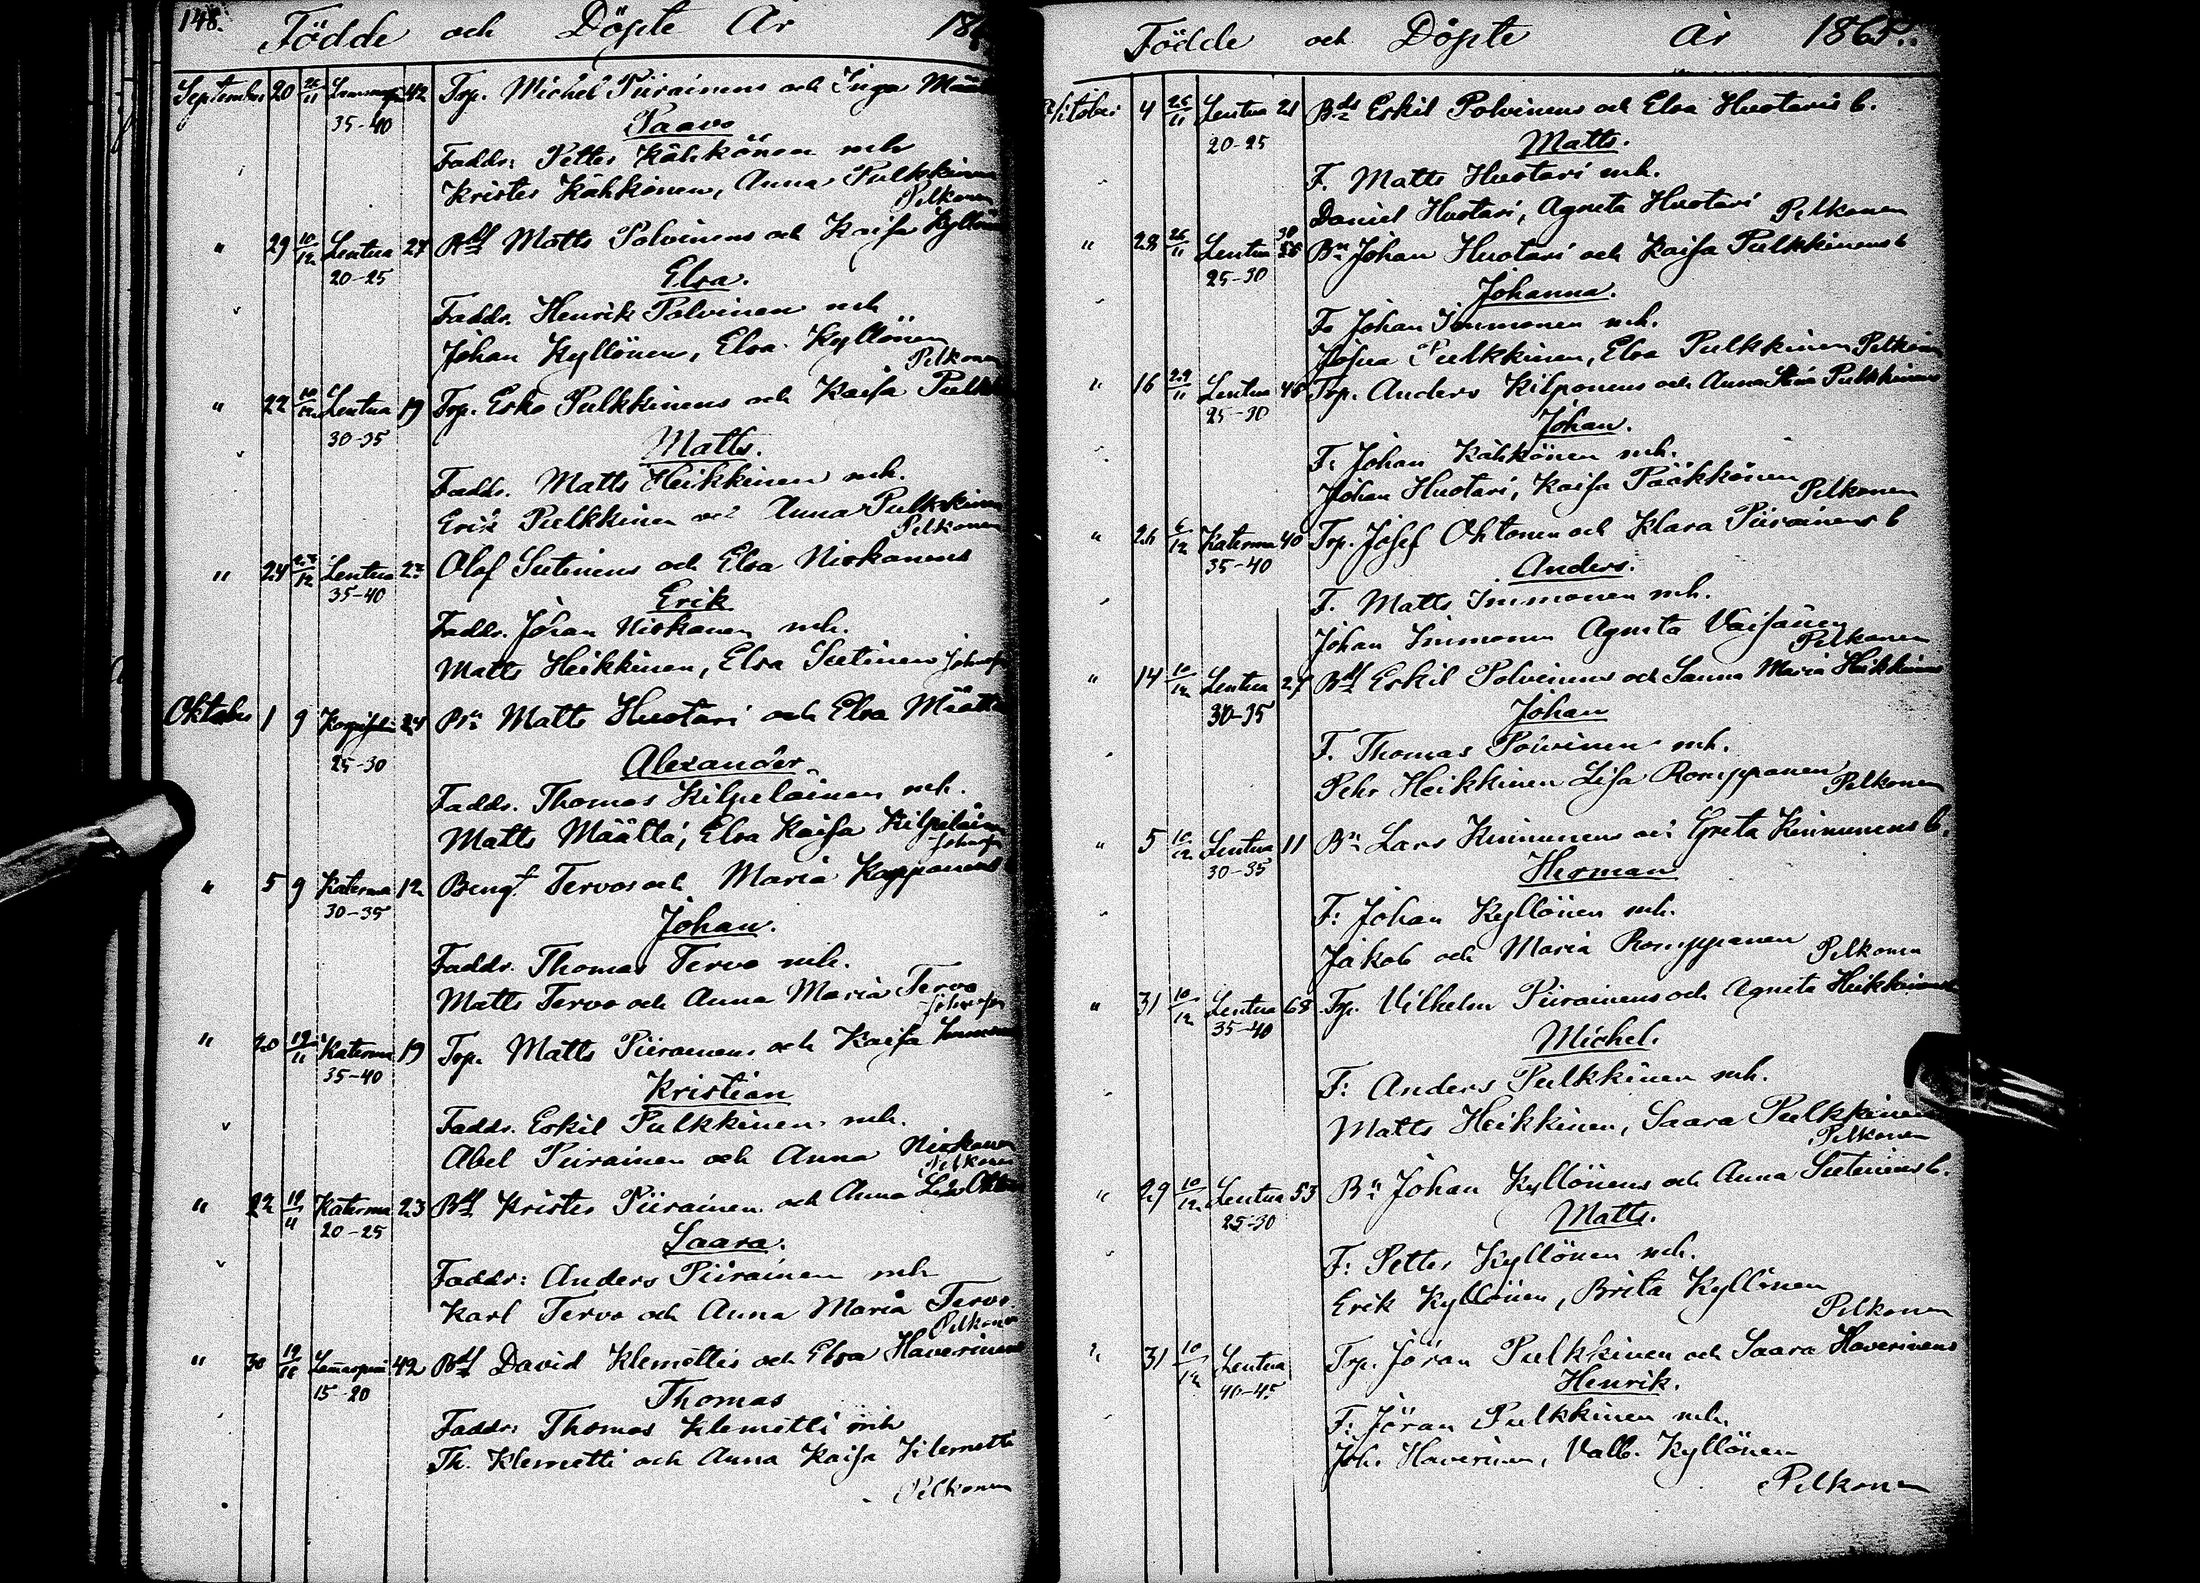 148.
Födde och Döpte År 186
September 20 26/11 42 Trp. Michel Piirainens och Inga Määt
35-40
Paavo
Faddr: Petter Kähkönen mh
Krister Kähkönen, Anna Pulkkinen
Pelkonen
" 29 10/12 Lentua 27 Bdf Matts Polvinens och Kaisa Kyllön
20-25
Elsa.
Faddr. Henrik Polvinen mh
Johan Kyllönen, Elsa Kyllönen
Pelkonen
" 22 10/12 Lentua 19 Trp. Esko Pulkkinens och Kaisa Pulkk
30-35
Matts.
Faddr. Matts Heikkinen mh.
Erik Pulkkinen och Anna Pulkkinen
Pelkonen
" 24 27/12 Lentua 27 Olof Sutinens och Elsa Niskanens
35-40
Erik
Faddr. Jöran Niskanen mh.
Matts Heikkinen, Elsa Sutinen
Oktober 1 9 24 Bn Matts Huotari och Elsa Määttä
25-30
Alexander
Faddr. Thomas Kilpeläinen mh.
Matts Määttä, Elsa Kaisa Kilpeläinen
" 5 9 Katerma 12 Bengt Tervos och Maria Kapponens
30-35
Johan.
Faddr. Thomas Tervo mh.
Matts Tervo och Anna Maria Tervo
" 20 19/11 Katerma 19 Trp. Matts Piirainens och Kaisa
35-40
Kristian
Faddr. Eskil Pulkkinen mh.
Abel Piirainen och Anna Niskanen
Pelkonen
" 22 19/11 Katerma 23 Bdf Krister Piirainen och Anna
20-25
Saara.
Faddr: Anders Piirainen mh
Karl Tervo och Anna Maria Tervo
Pelkonen
" 30 19/11 42 Bdf David Klemettis och Elsa Haverinens
15-20
Thomas
Faddr: Thomas Klemetti mh
Th. Klemetti och Anna Kaisa Klemetti
Pelkonen
Födde och Döpte År 1865.
Oktober 4 26/11 Lentua 21 Bds Eskil Polvinens och Elsa Huotaris b.
20-25
Matts.
F. Matts Huotari mh.
Daniel Huotari, Agneta Huotari Pelkonen
" 28 26/11 Lentua Bn Johan Huotari och Kaisa Pulkkinens b
25-30
Johanna.
F. Johan Immonen mh.
Josua Pulkkinen, Elsa Pulkkinen Pelkonen
" 16 29/11 Lentua 46 Trp. Anders Kilponens och Anna Stina Pulkkinens
25-30
Johan.
F. Johan Kähkönen mh.
Johan Huotari, Kaisa Pääkkönen
Pelkonen
" 26 6/12 Katerma 40 Trp. Josef Ohtonen och Klara Piirainens b
35-40
Anders.
F. Matts Immonen mh.
Johan Immonen Agneta Väisänen
Pelkonen
" 14 10/12 Lentua 27 Bdf Eskil Polvinens och Sanna Maria Heikkinens
30-35
Johan
F. Thomas Polvinen mh.
Pehr Heikkinen Lisa Romppanen
Pelkonen
" 5 10/12 Lentua 11 Bn Lars Kinnunens och Greta Kinnunens b.
30-35
Herman
F: Johan Kyllönen mh.
Jakob och Maria Romppanen Pelkonen
" 31 10/12 Lentua 68 Trp. Vilhelm Piirainens och Agneta Heikkinens
35-40
Michel.
F: Anders Pulkkinen mh.
Matts Heikkinen, Saara Pulkkinen
Pelkonen
" 29 10/12 Lentua 53 Bn Johan Kyllönens och Anna Sutinens b.
25-30
Matts.
F: Petter Kyllönen mh.
Erik Kyllönen, Brita Kyllönen
Pelkonen
" 31 10/12 Lentua Trp. Jöran Pulkkinen och Saara Haverinens
40-45
Henrik.
F: Jöran Pulkkinen mh.
Joh. Haverinen, Valb. Kyllönen
Pelkonen